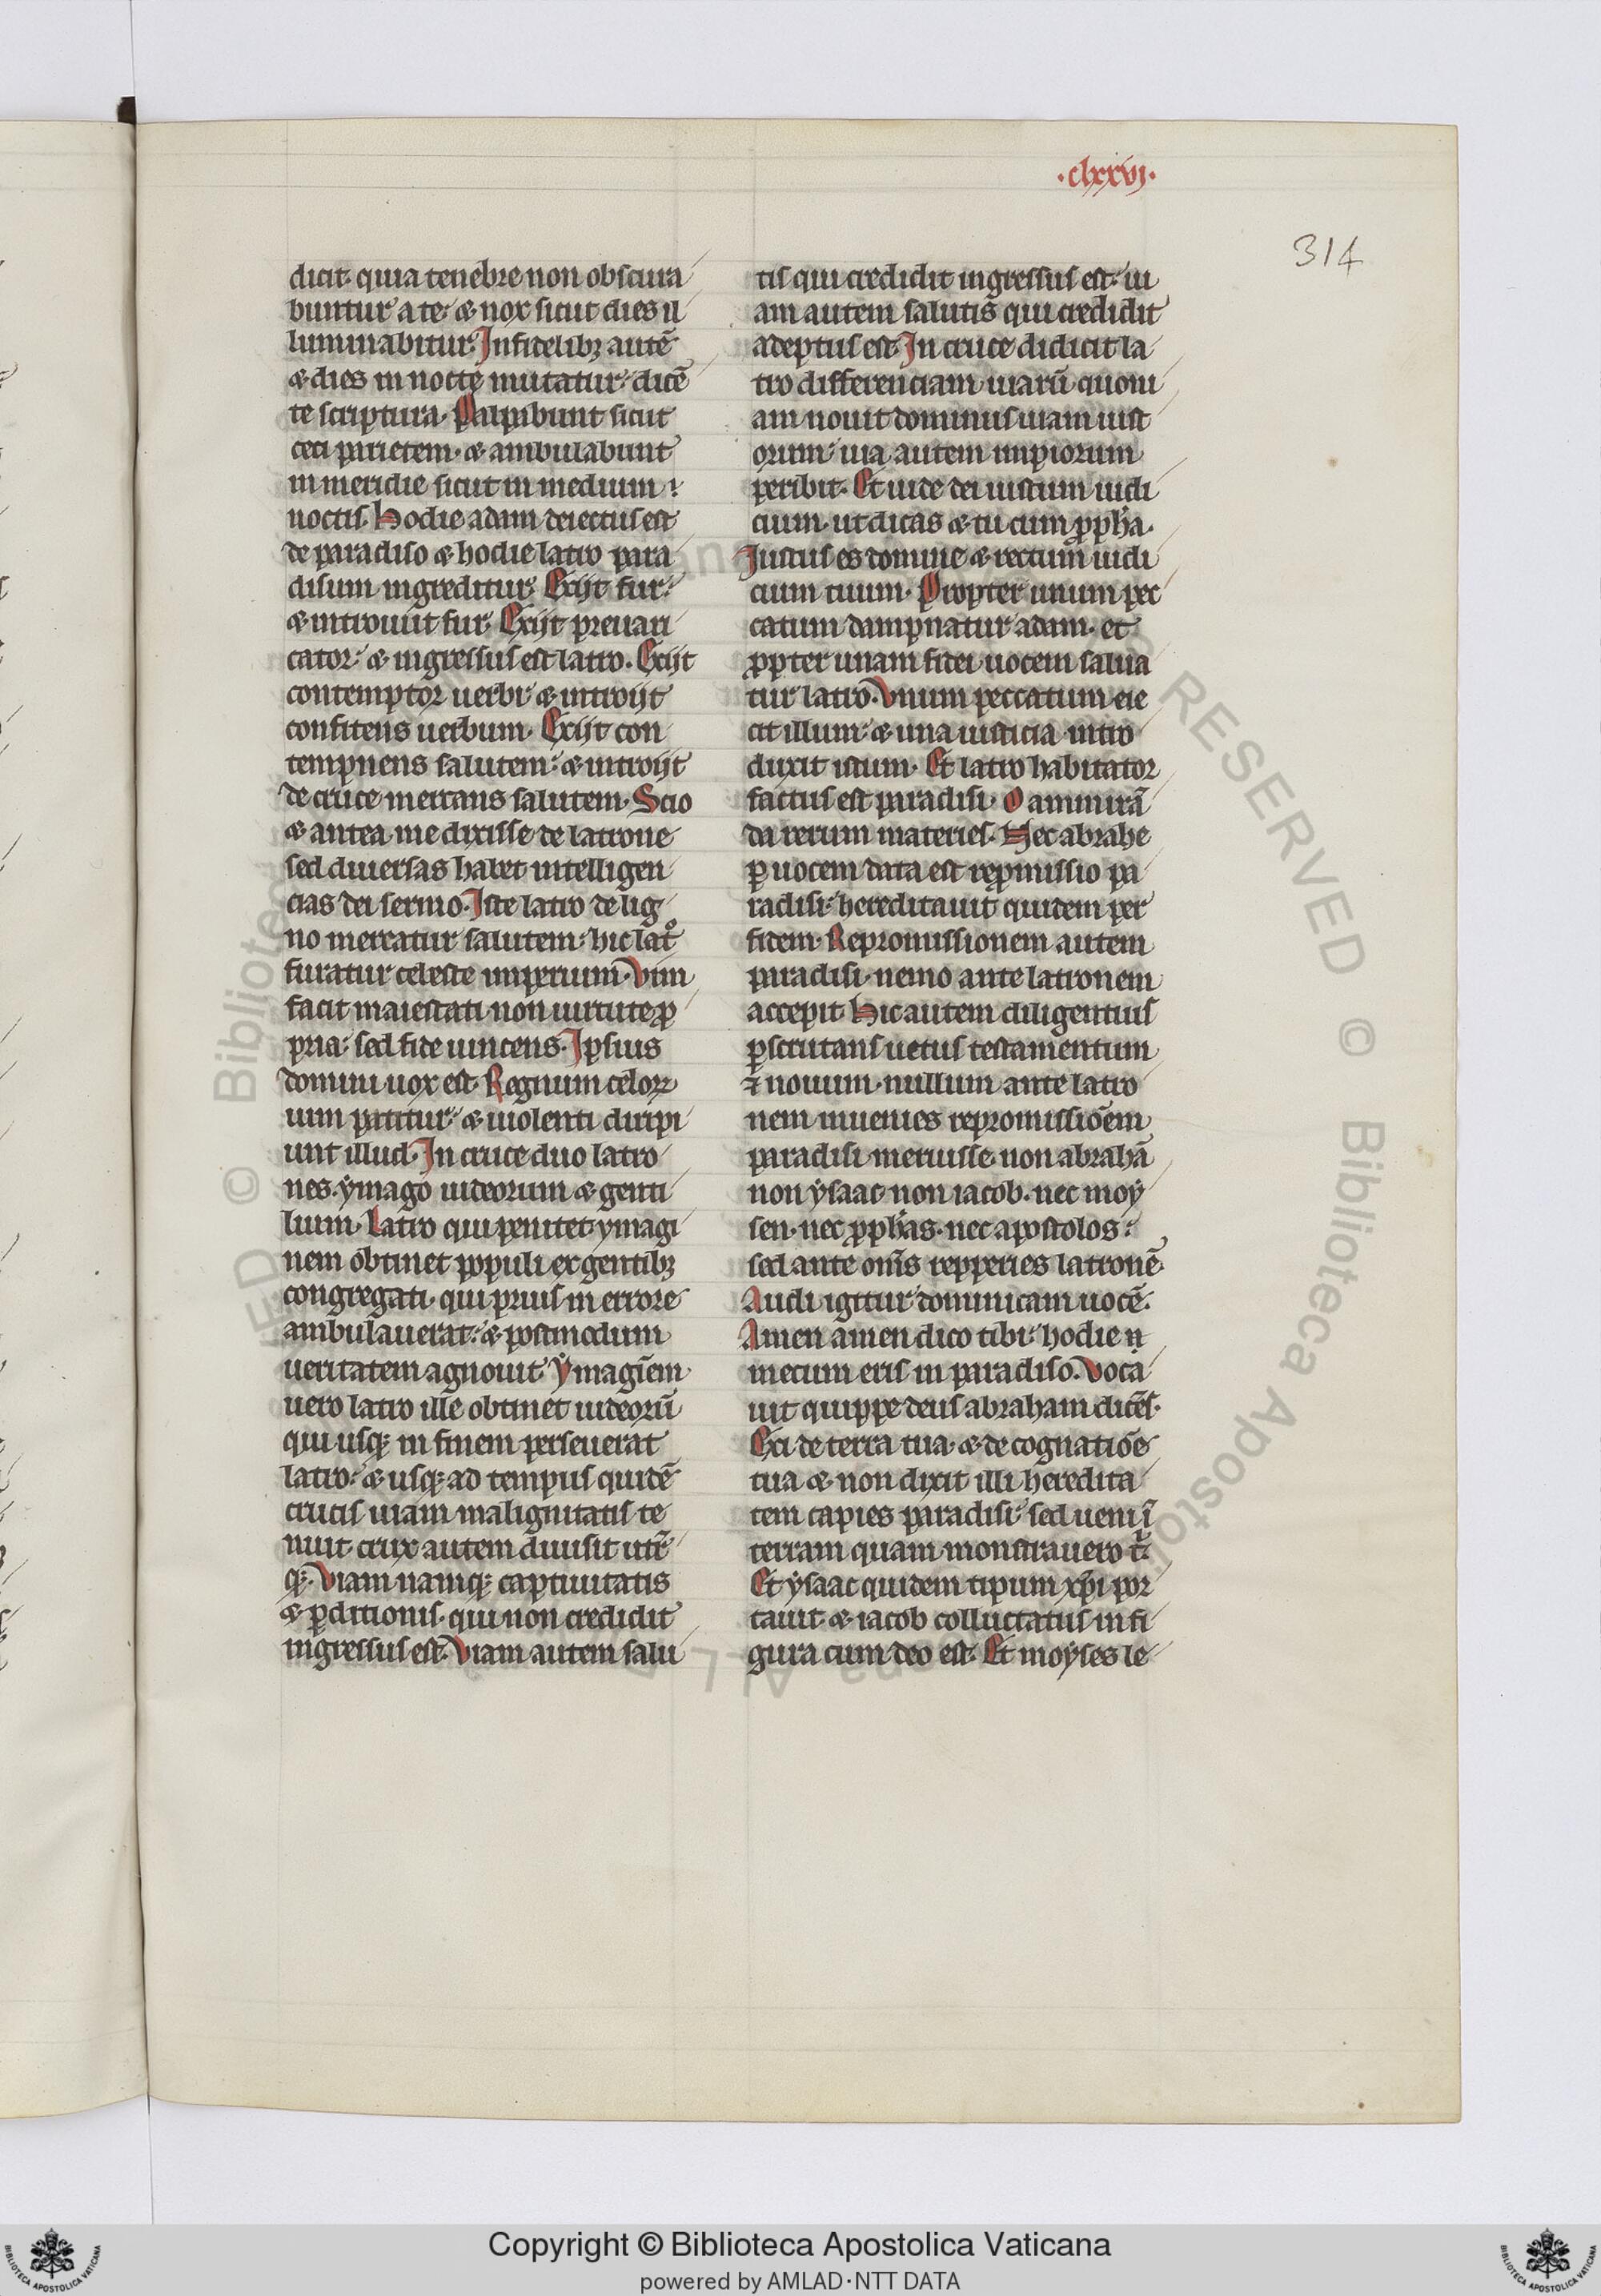 ·clxxvj·
314
dicit· quia tenebre non obscura
buntur a te· & nox sicut dies il
luminabitur· Infidelibꝫ autē
& dies in nocte mutatur· dicē
te scriptura· Palpabunt sicut
ceci parietem· & ambulabunt
in meridie sicut in medium
noctis· Hodie adam deiectus est
de paradiso & hodie latro para
disum ingreditur· Exijt fur·
& introiuit fur· Exijt preuari
cator· & ingressus est latro· Exijt
contemptor uerbi· & introijt
confitens uerbum· Exijt con
tempnens salutem· & introijt
de cruce mercans salutem· Scio
& antea me dixisse de latrone
sed diuersas habet intelligen
cias dei sermo· Iste latro de lig
no mercatur salutem· hic latº
furatur celeste imperium· Vim
facit maiestati non uirtute ꝓ
pria· sed fide uincens· Ipsius
domini uox est· Regnum celoꝝ
uim patitur· & uiolenti diripi
unt illud· In cruce duo latro
nes· ẏmago iudeorum & genti
lium· Latro qui penitet ymagi
nem obtinet ꝓpuli ex gentibꝫ
congregati· qui prius in errore
ambulauerat· & postmodum
ueritatem agnouit· Ẏmagīem
uero latro ille obtinet iudeorū
qui usqꝫ in finem perseuerat
latro· & usqꝫ ad tempus quidē
crucis uiam malignitatis te
nuit crux autem diuisit utrū
qꝫ· Viam namqꝫ captiuitatis
& ꝑditionis· qui non credidit
ingressus est· Viam autem salu
tis qui credidit ingressus est· ui
am autem salutis qui credidit
adeptus est· In cruce didicit la
tro differenciam uiarū quoni
am nouit dominus uiam iust
orum· uia autem impiorum
peribit· Et uide dei iustum iudi
cium· ut dicas & tu cum ꝓpha·
Iustus es domine & rectum iudi
cium tuum· Propter unum pec
catum dampnatur adam· et
ꝓpter unam fidei uocem salua
tur latro· Vnum peccatum eie
cit illum· & una iusticia intro
duxit istum· Et latro habitator
factus est paradisi· O ammirā
da rerum materies· Hec abrahe
ꝑ uocem data est reꝓmissio pa
radisi· hereditauit quidem per
fidem· Repromissionem autem
paradisi· nemo ante latronem
accepit· Hic autem diligentius
ꝑscrutans uetus testamentum
⁊ nouum· nullum ante latro
nem inuenies repromissiōem
paradisi meruisse· non abrahā
non ẏsaac· non iacob· nec moẏ
sen· nec ꝓphas· nec apostolos·
sed ante om̄s repperies latronē·
Audi igitur dominicam uocē·
Amen amen dico tibi· hodie
mecum eris in paradiso· Voca
uit quippe deus abraham dicēs·
Exi de terra tua· & de cognatiōe
tua & non dixit illi heredita
tem capies paradisi· sed ueni ī
terram quam monstrauero t̄·
Et ẏsaac quidem tipum xp̄i por
tauit· & iacob colluctatus in fi
gura cum deo est· Et moẏses le
Copyright © Biblioteca Apostolica Vaticana
powered by AMLAD·NTT DATA